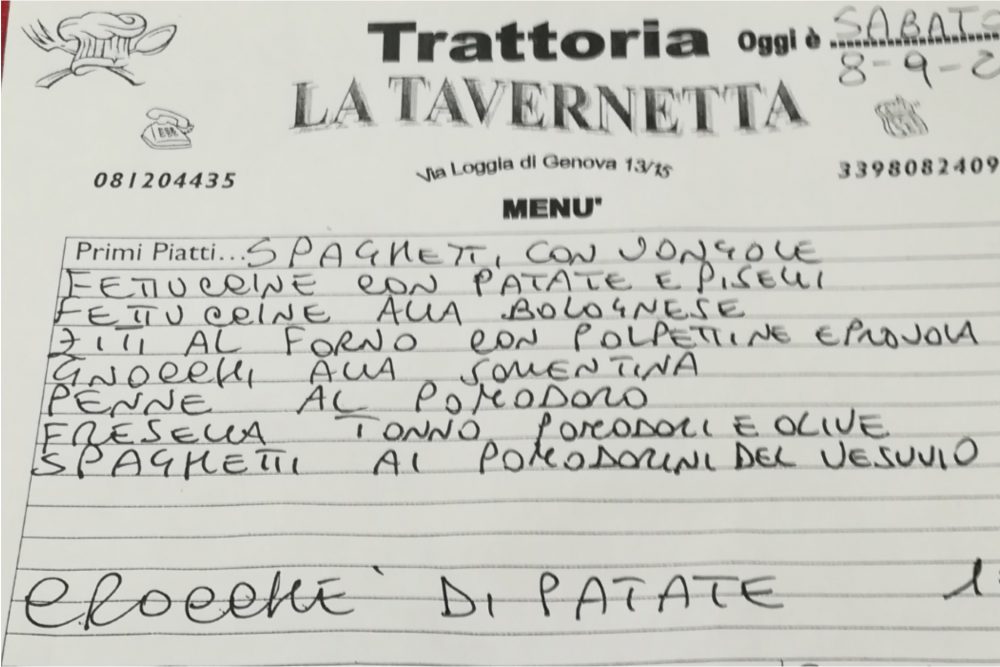 Trattoria Oggi è SABATO
8-9-2
LA TAVERNETTA
Via Loggia di Genova 13/15
081204435
3398082409
MENU'
Primi Piatti...SPAGHETTI CON VONGOLE
FETTUCCINE CON PATATE E PISELLI
FETTUCCINE ALLA BOLOGNESE
ZITI AL FORNO CON POLPETTINE E PROVOLA
GNOCCHI ALLA SORRENTINA
PENNE AL POMODORO
FRESELLA TONNO POMODORI E OLIVE
SPAGHETTI AI POMODORINI DEL VESUVIO
CROCCHE' DI PATATE 1